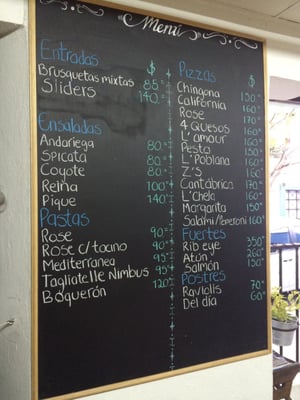 Menú
Entradas $
Brusquetas mixtas 85
Sliders 140
Ensaladas
Andariega 80
Spicata 80
Coyote 80
Reina 100
Pique 140
Pastas
Rose 90
Rose c/tocino 90
Mediterranea 95
Tagliatelle Nimbus 95
Boquerón 120
Pizzas $
Chingona 150
California 160
Rose 170
4 Quesos 160
L'amour 160
Pesto 150
L'Poblana 160
Z's 160
Cantábrica 170
L'chela 160
Margarita 150
Salami/Peperoni 160
Fuertes
Rib eye 350
Atún 260
Salmón 150
Postres
Raviolis 70
Del día 60